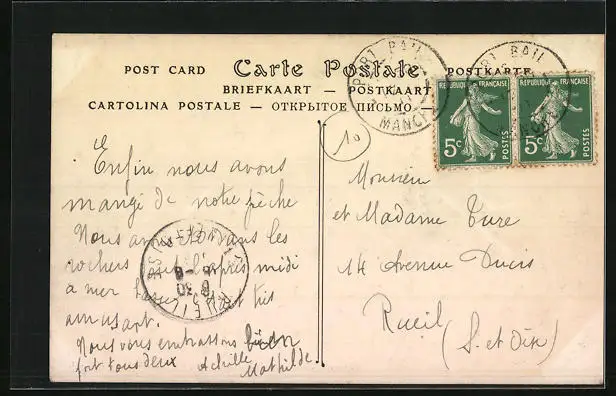 POST CARD Carte Postale POSTKARTE
BRIEFKAART — POSTKAART
CARTOLINA POSTALE — ОТКРЫТОЕ ПИСЬМО —
PORT BAIL
MANCHE
PORT BAIL
REPUBLIQUE FRANÇAISE
5c POSTES
REPUBLIQUE FRANÇAISE
5c POSTES
10
Enfin nous avons
mangé de notre pêche
Nous dans les
rochers l'après midi
à mer et très
amusant.
Nous vous embrassons bien
fort tous deux Achille
Mathilde
RUEIL
8 30
Monsieur
et Madame Ture
14 Avenue Ducis
Rueil
(S. et Oise)